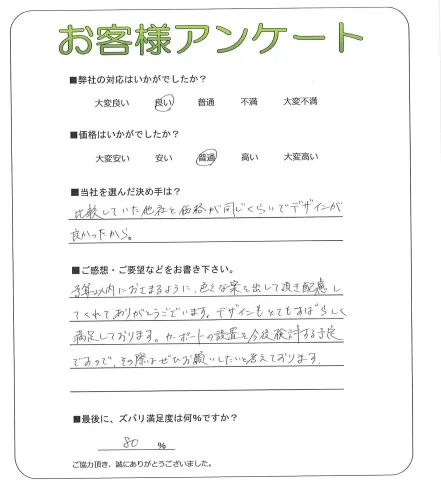 お客様アンケート
■弊社の対応はいかがでしたか？
大変良い 良い 普通 不満 大変不満
■価格はいかがでしたか？
大変安い 安い 普通 高い 大変高い
■当社を選んだ決め手は？
比較していた他社と価格が同じくらいでデザインが
良かったから。
■ご感想・ご要望などをお書き下さい。
予算以内におさまるように、色々な案を出して頂き配慮し
てくれてありがとうございます。デザインもとてもすばらしく
満足しております。カーポートの設置を今後検討する予定
ですので、その際はぜひお願いしたいと考えております。
■最後に、ズバリ満足度は何％ですか？
80 ％
ご協力頂き、誠にありがとうございました。